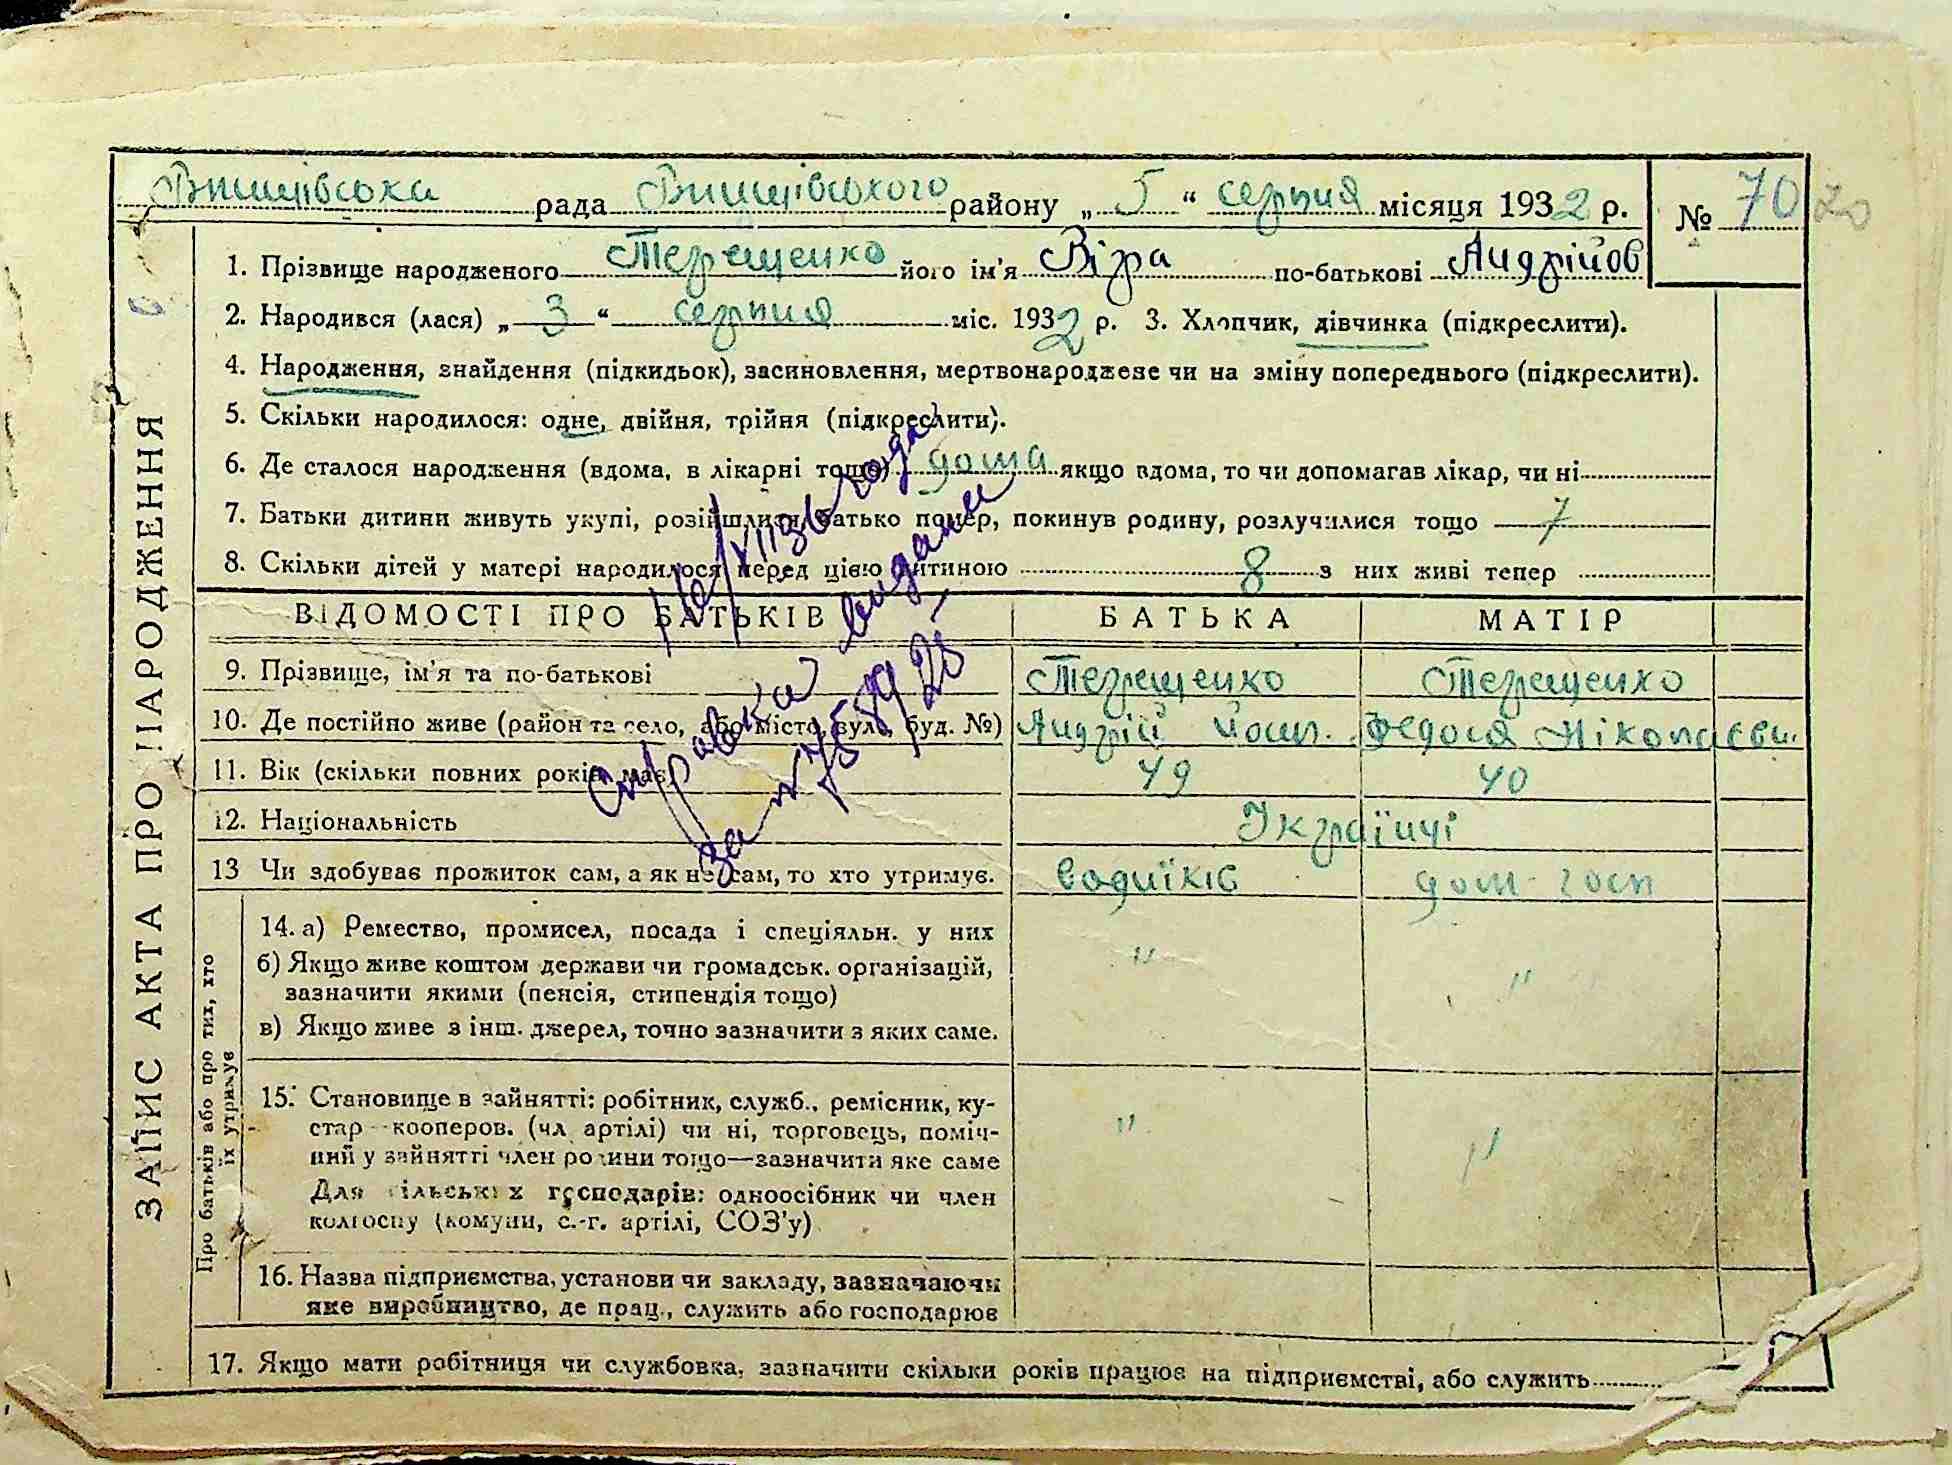 рада району „ 5 “ серпня місяця 1932 р. № 70 20
ЗАПИС АКТА ПРО НАРОДЖЕННЯ
1. Прізвище народженого Терещенко його ім'я Віра по-батькові Андрійов
2. Народився (лася) „ 3 “ серпня міс. 1932 р. 3. Хлопчик, дівчинка (підкреслити).
4. Народження, знайдення (підкидьок), засиновлення, мертвонароджене чи на зміну попереднього (підкреслити).
5. Скільки народилося: одне, двійня, трійня (підкреслити).
6. Де сталося народження (вдома, в лікарні тощо) дома якщо вдома, то чи допомагав лікар, чи ні
7. Батьки дитини живуть укупі, розійшлися, батько помер, покинув родину, розлучилися тощо 7
8. Скільки дітей у матері народилося перед цією дитиною 8 з них живі тепер
ВІДОМОСТІ ПРО БАТЬКІВ БАТЬКА МАТІР
9. Прізвище, ім'я та по-батькові Терещенко Терещенко
10. Де постійно живе (район та село, або місто, вул., буд. №) Андрій Йосип. Федося Ніколаєвн.
11. Вік (скільки повних років має) 49 40
12. Національність Українці
13 Чи здобуває прожиток сам, а як не сам, то хто утримує. дом. госп
Про батьків або про тих, хто
їх утримує
14. а) Ремество, промисел, посада і спеціяльн. у них " "
б) Якщо живе коштом держави чи громадськ. організацій,
зазначити якими (пенсія, стипендія тощо)
в) Якщо живе з інш. джерел, точно зазначити з яких саме.
15. Становище в зайнятті: робітник, служб., ремісник, ку-
стар—кооперов. (чл. артілі) чи ні, торговець, поміч- " "
ний у зайнятті член родини тощо—зазначити яке саме
Для сільських господарів: одноосібник чи член
колгоспу (комуни, с.-г. артілі, СОЗ'у)
16. Назва підприємства, установи чи закладу, зазначаючи
яке виробництво, де прац., служить або господарює
17. Якщо мати робітниця чи службовка, зазначити скільки років працює на підприємстві, або служить
Справка выдана
за №